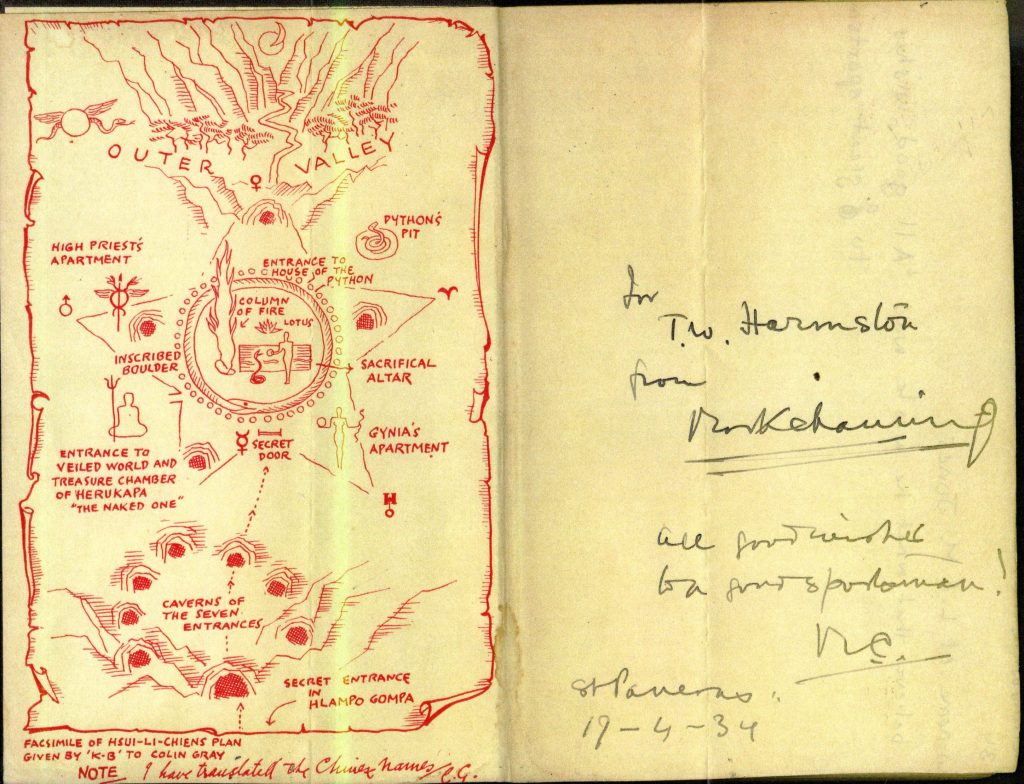 OUTER VALLEY
PYTHON'S
PIT
HIGH PRIEST'S
APARTMENT
ENTRANCE TO
HOUSE OF THE
PYTHON
COLUMN
OF FIRE
LOTUS
INSCRIBED
BOULDER
SACRIFICAL
ALTAR
SECRET
DOOR
GYNIA'S
APARTMENT
ENTRANCE TO
VEILED WORLD AND
TREASURE CHAMBER
OF HERUKAPA
"THE NAKED ONE"
H
CAVERNS OF
THE SEVEN
ENTRANCES
SECRET ENTRANCE
IN
HLAMPO GOMPA
FACSIMILE OF HSUI-LI-CHIENS PLAN
GIVEN BY 'K-B' TO COLIN GRAY
NOTE I have translated the Chinese names C.G.
for
T.W. Harmston
from
Mark Channing
all good wishes
to a good sportsman!
M.C.
St Pancras.
19-4-34